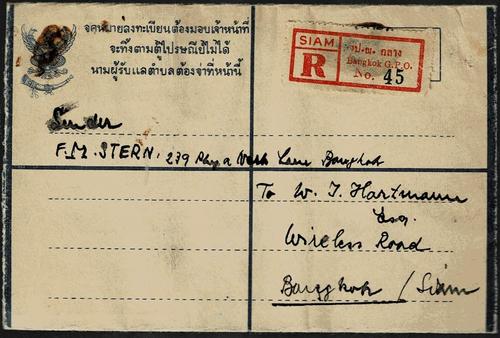 จดหมายลงทะเบียนต้องมอบเจ้าหน้าที่
จะทิ้งตามตู้ไปรษณีย์ไม่ได้
นามผู้รับแลตำบลต้องจ่าที่หน้านี้
SIAM
R
ป.ณ. กลาง
Bangkok G.P.O.
No. 45
Sender
F.M. STERN, 239 Phya Lane Bangkok
To W. J. Hartmann
Esq.
Wireless Road
Bangkok / Siam